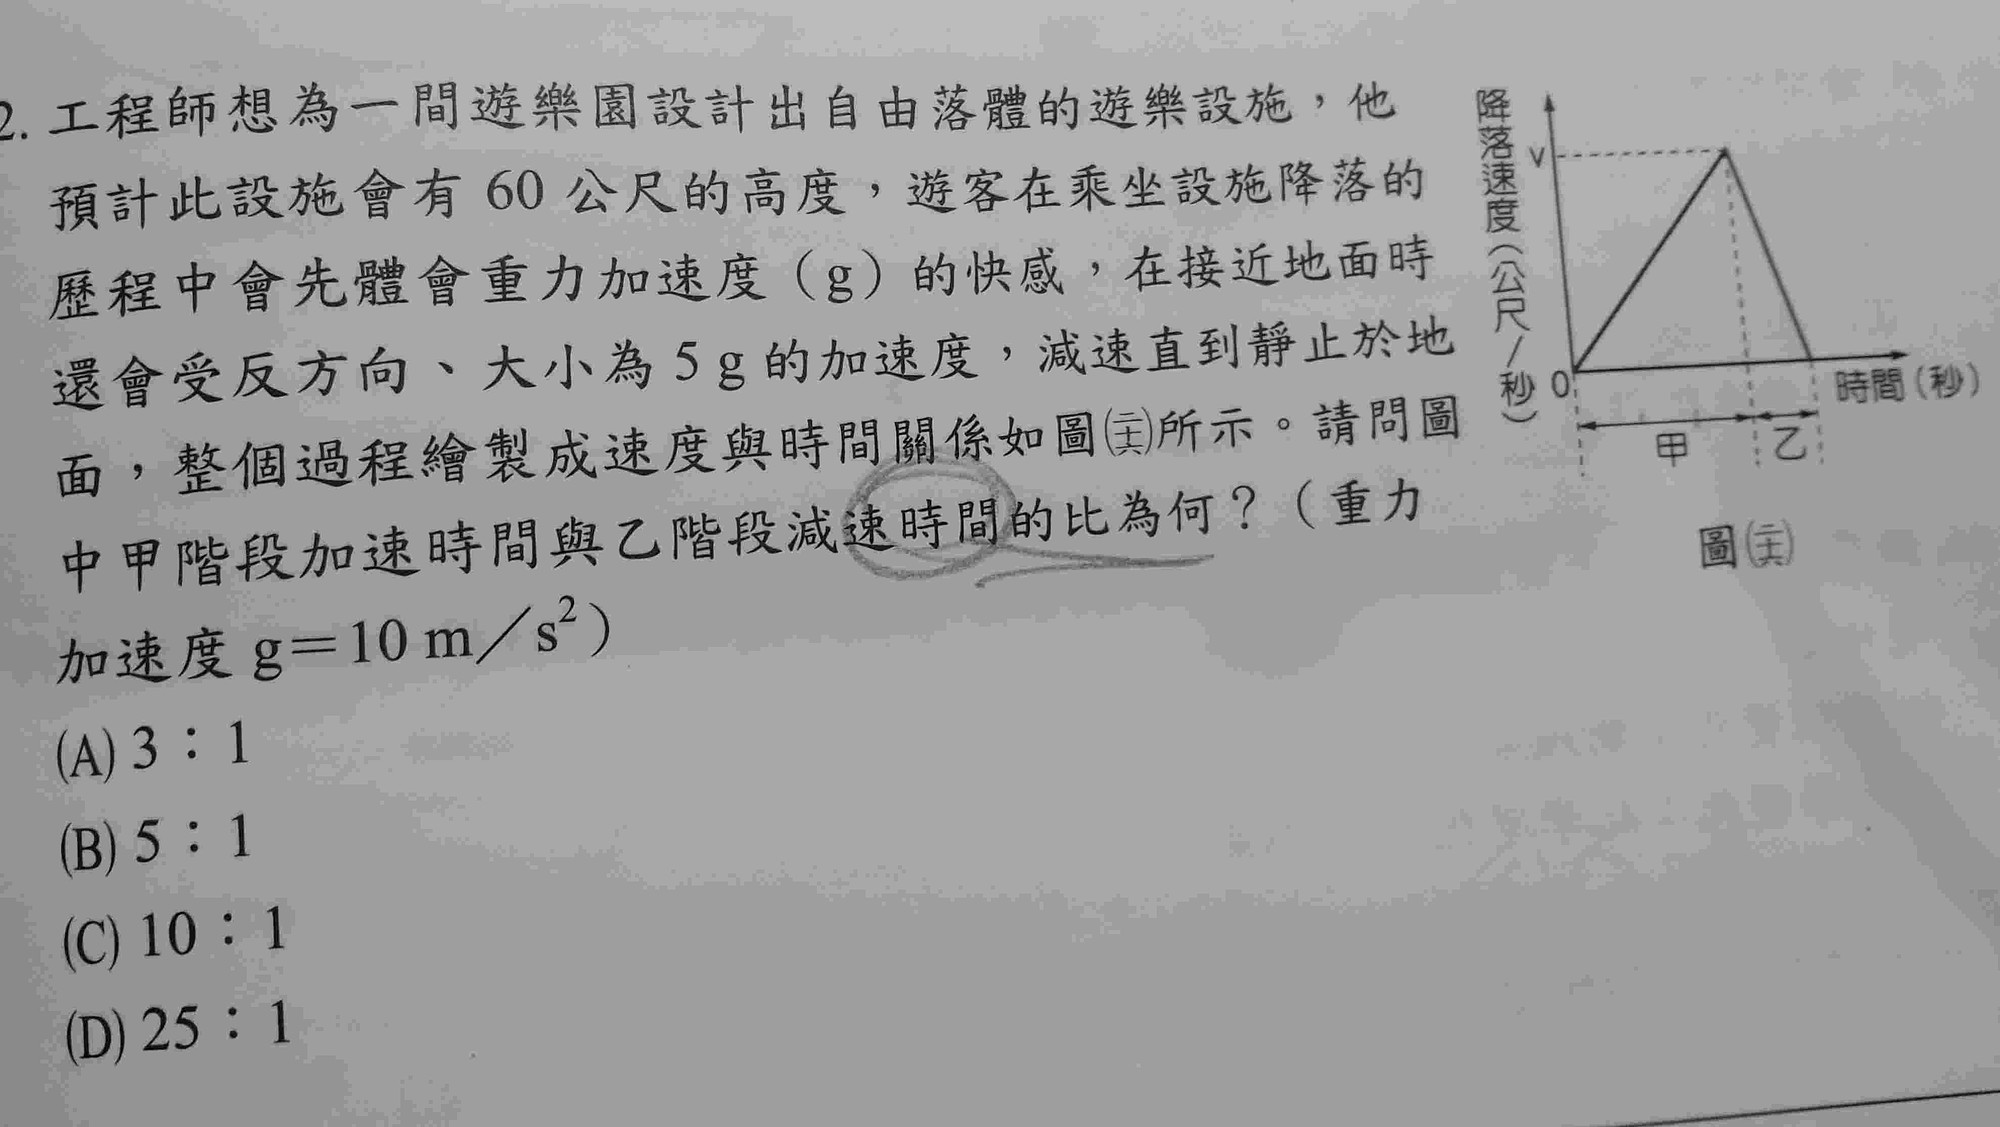 2. 工程師想為一間遊樂園設計出自由落體的遊樂設施，他
預計此設施會有 60 公尺的高度，遊客在乘坐設施降落的
歷程中會先體會重力加速度（g）的快感，在接近地面時
還會受反方向、大小為 5 g 的加速度，減速直到靜止於地
面，整個過程繪製成速度與時間關係如圖(二十六)所示。請問圖
中甲階段加速時間與乙階段減速時間的比為何？（重力
加速度 g＝10 m／s²）
(A) 3：1
(B) 5：1
(C) 10：1
(D) 25：1
降落速度（公尺／秒）
v
0
時間（秒）
甲
乙
圖(二十六)